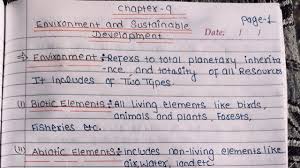 Chapter-9
Environment and Sustainable Page-1
Development Date: / /
Environment :- Refers to total planetary inherita
-nce, and totality of all Resources
It Includes of Two Types
(i) Biotic Elements:- All living elements like birds,
animals and plants, Forests,
Fisheries etc.
(ii) Abiotic Elements:- includes non-living elements like
air, water, land etc.